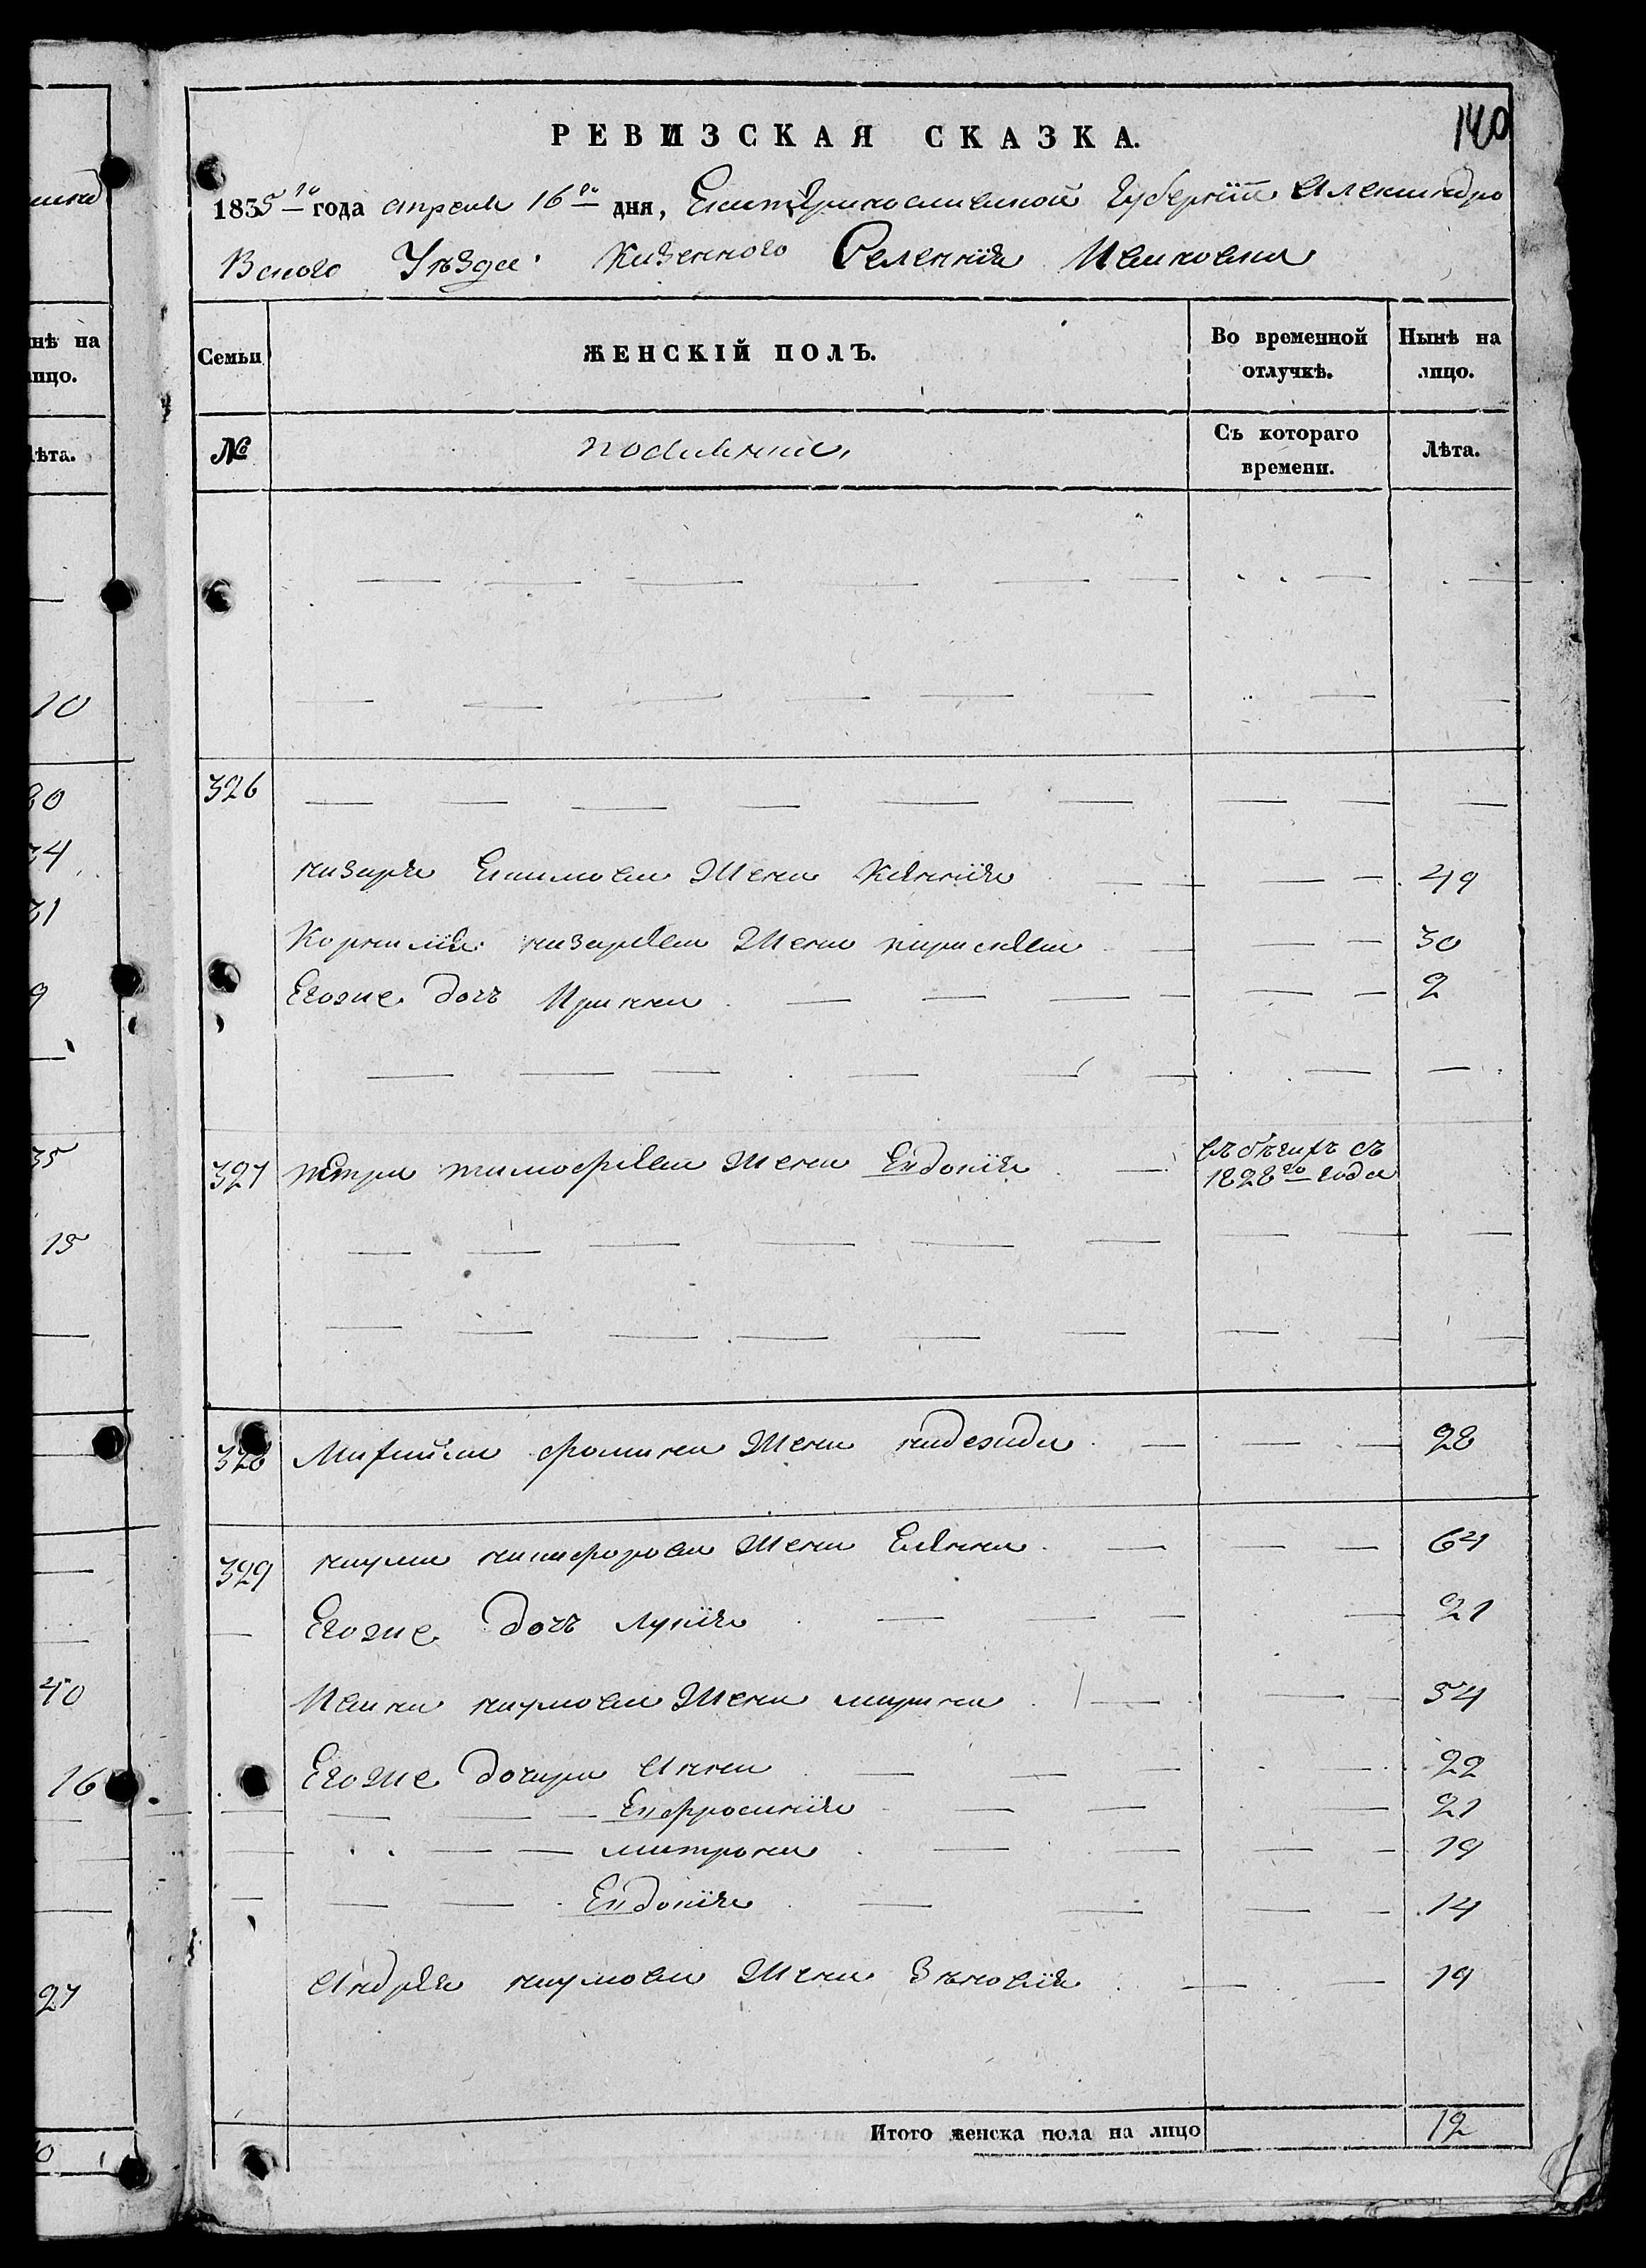 140
РЕВИЗСКАЯ СКАЗКА.
1835го года апреля 16го дня, Екатеринославской Губернїи Александро
Вского Уѣзда казенного Селенїя Ивановки
Семьи
ЖЕНСКІЙ ПОЛЪ.
Во временной отлучкѣ.
Нынѣ на лицо.
№
Съ котораго времени.
Лѣта.
326
назара Екимова жена Ксенія 49
Корнилія назарьева жена параскевья 30
Егоже дочъ Ирина 2
327 петра тимофеева жена Евдокія въ бѣгахъ съ 1828го года
328 фомина жена надежда 28
329 наума никифорова жена Елена 64
Егоже дочъ лукія 21
Ивана наумова жена марина 54
Егоже дочери анна 22
Ефросинія 21
матрона 19
Евдокія 14
андрея наумова жена Зѣновія 19
Итого женска пола на лицо 12
нѣ на
лицо.
лѣта.
10
30
34
31
9
35
15
40
16
27